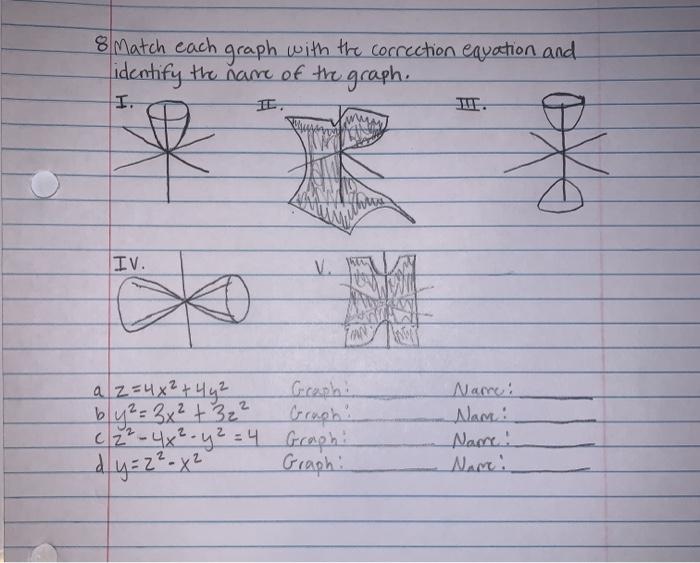 8 Match each graph with the correction equation and
identify the name of the graph.
I. II. III.
IV. V.
a z=4x²+4y² Graph: Name:
b y²=3x²+3z² Graph: Name:
c z²-4x²-y²=4 Graph: Name:
d y=z²-x² Graph: Name: